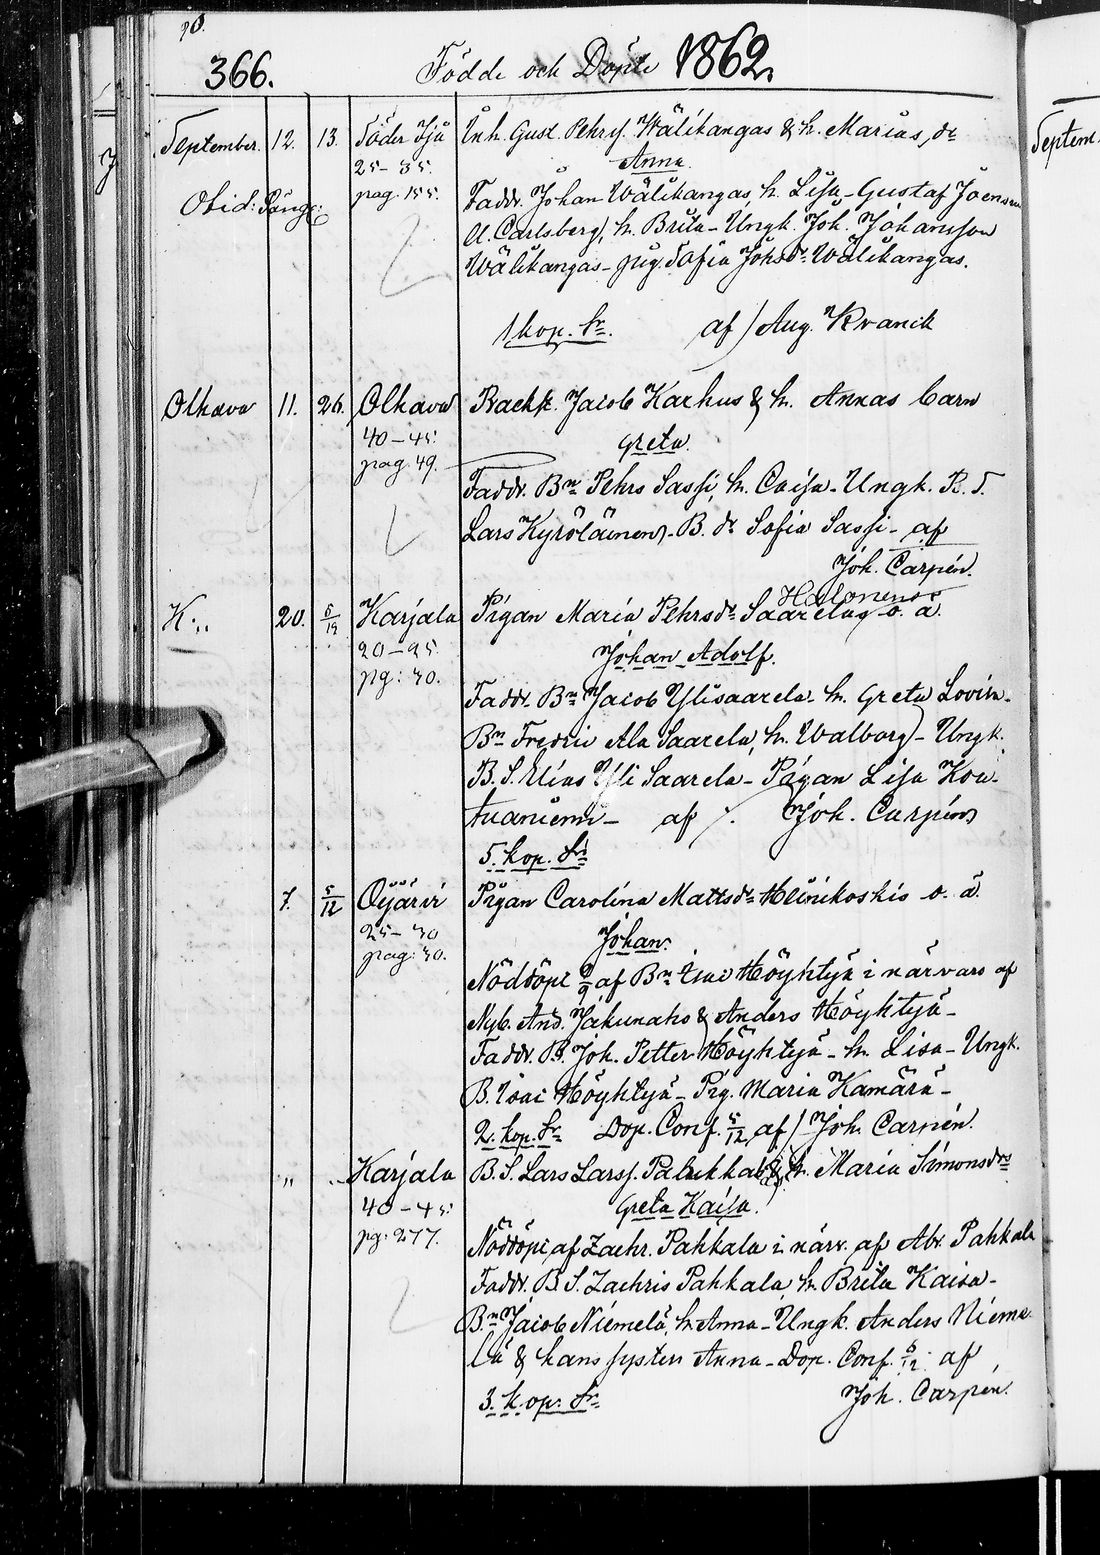 366. Födde och Döpte 1862.
September. 12. 13. Söder Ijå Inh. Gust. Pehrsf. Wälikangas & h. Marias, dr
25–35. Anna
pag. 155. Faddr. Johan Wälikangas, h. Lisa – Gustaf Joensuu
Obid:
A. Carlsberg, h. Brita – Ungk. Joh. Johansson
Wälikangas – pig. Sofia Johsdr Wälikangas.
1 kop. Sr. af / Aug. Kranck
Olhava 11. 26. Olhava Backst. Jacob Karhus & h. Annas barn
40–45. Greta.
pag. 49.
Faddr. Bn Pehr Sassi, h. Caisa – Ungk. B. S.
Lars Kyröläinen – B. dr Sofia Sassi – af
Joh. Carpén.
Halonens
K. „ 20. 5/12 Karjala Pigan Maria Pehrsdr Saarelas o. ä.
20–25. Johan Adolf.
pg: 30.
Faddr. Bn Jacob Ylisaarela – h. Greta Lovisa –
Bn Fredric Ala Saarela, h. Walborg – Ungk.
B. S. Elias Yli Saarela – Pigan Lisa Kou-
tuaniemi – af /. Joh. Carpén
5. kop. Sr
7. 5/12 Oijärvi Pigan Carolina Mattsdr Heinikoskis o. ä.
25–30 Johan.
pag: 30.
Nöddöpt 9/9 af Bn Isac Höyhtyä i närvaro af
Nyb. And. Jakunaho & Anders Höyhtyä –
Faddr. B. Joh. Petter Höyhtyä – h. Lisa – Ungk.
B. Isac Höyhtyä – Pig. Maria Kamärä –
2. kop. Sr Dop. Conf. 5/12 af / Joh. Carpén.
„ Karjala B. S. Lars Larsf. Pahkkala & h. Maria Simonsdrs
40–45. Greta Kaisa.
pg: 277.
Nöddöpt af Zachr. Pahkala i närv. af Abr. Pahkala
Faddr. B. S. Zachris Pahkala, h. Brita Kaisa –
Bn Jacob Niemelä, h. Anna – Ungk. Anders Nieme-
lä & hans syster Anna – Dop. Conf. 5/12 af
3. kop. Sr Joh. Carpén.
Septem.